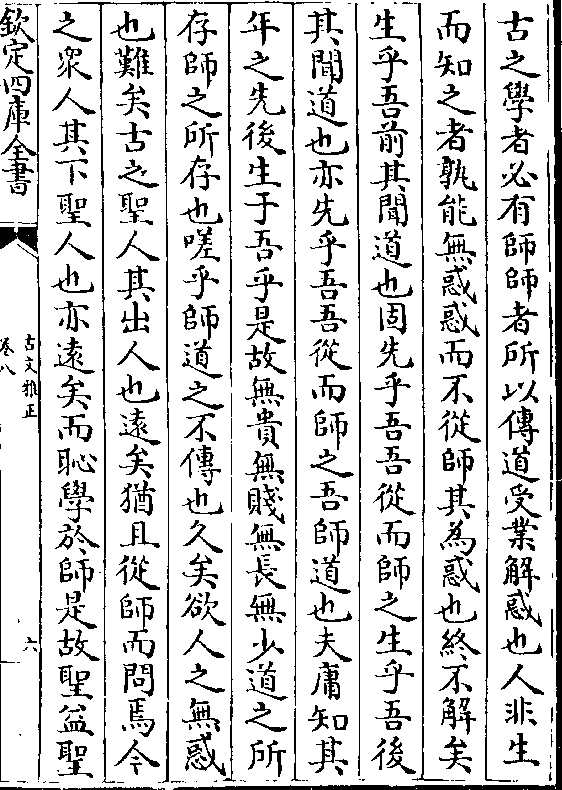 古之學者必有師師者所以傳道受業解惑也人非生
而知之者孰能無惑惑而不從師其為惑也終不解矣
生乎吾前其聞道也固先乎吾吾從而師之生乎吾後
其聞道也亦先乎吾吾從而師之吾師道也夫庸知其
年之先後生于吾乎是故無貴無賤無長無少道之所
存師之所存也嗟乎師道之不傳也久矣欲人之無惑
也難矣古之聖人其出人也遠矣猶且從師而問焉今
之衆人其下聖人也亦遠矣而恥學於師是故聖益聖
欽定四庫全書
古文雅正
卷八
六